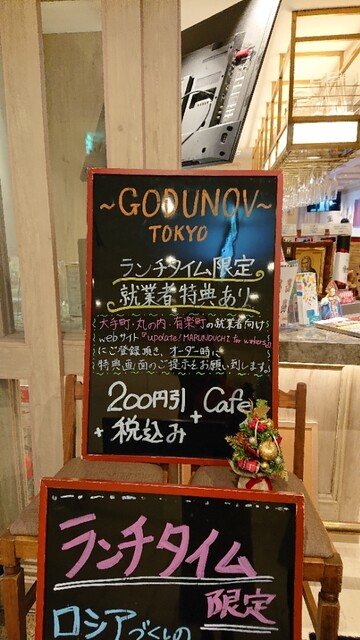 ~GODUNOV~
TOKYO
ランチタイム限定
就業者特典あり
大手町・丸の内・有楽町の就業者向け
webサイト『update! MARUNOUCHI for workers』
にご登録頂き、オーダー時に
特典画面のご提示をお願い致します。
200円引 Cafe
+
+ 税込み
ランチタイム
限定
ロシアづくしの